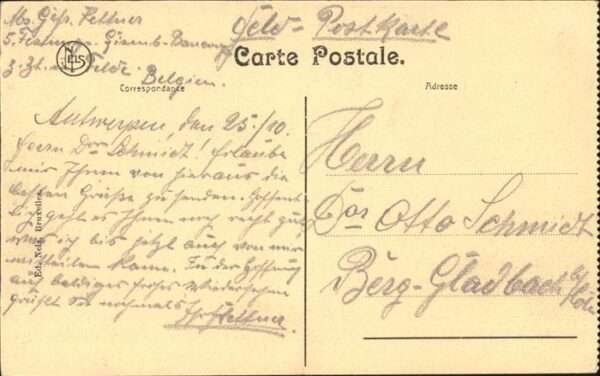 Abs. Gefr. Kettner
5.
z. Zt. im Felde Belgien.
Feld- Postkarte
NELS
Carte Postale.
Correspondance
Adresse
Antwerpen den 25./10.
Herrn Dor Schmidt! Erlaube
mir Ihnen von hieraus die
besten Grüße zu senden. Hoffent-
lich geht es Ihnen noch recht gut,
was ich bis jetzt auch von mir
mitteilen kann. In der Hoffnung
auf baldiges frohes Wiedersehen
grüßt Sie nochmals Ihr Kettner.
Ed. Nels, Bruxelles.
Herrn
Dor Otto Schmidt
Berg-Gladbach b/
Köln